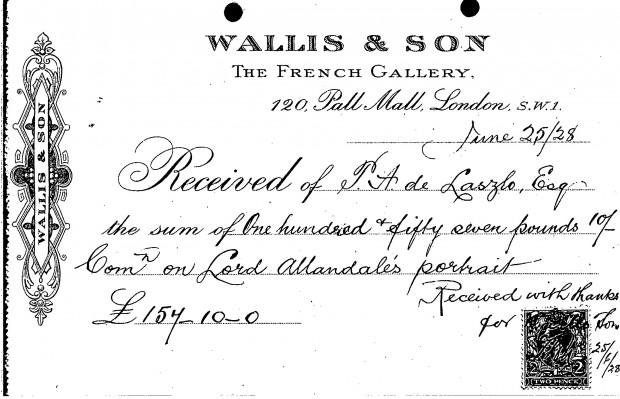 WALLIS & SON
THE FRENCH GALLERY,
120, Pall Mall, London, S.W.1.
June 25/28
WALLIS & SON
Received of P. A. de Laszlo, Esq
the sum of One hundred & fifty seven pounds 10/-
Comn on Lord Allandale's portrait
Received with thanks
£ 157-10-0
for
& Son
25/
/28
2
TWO PENCE